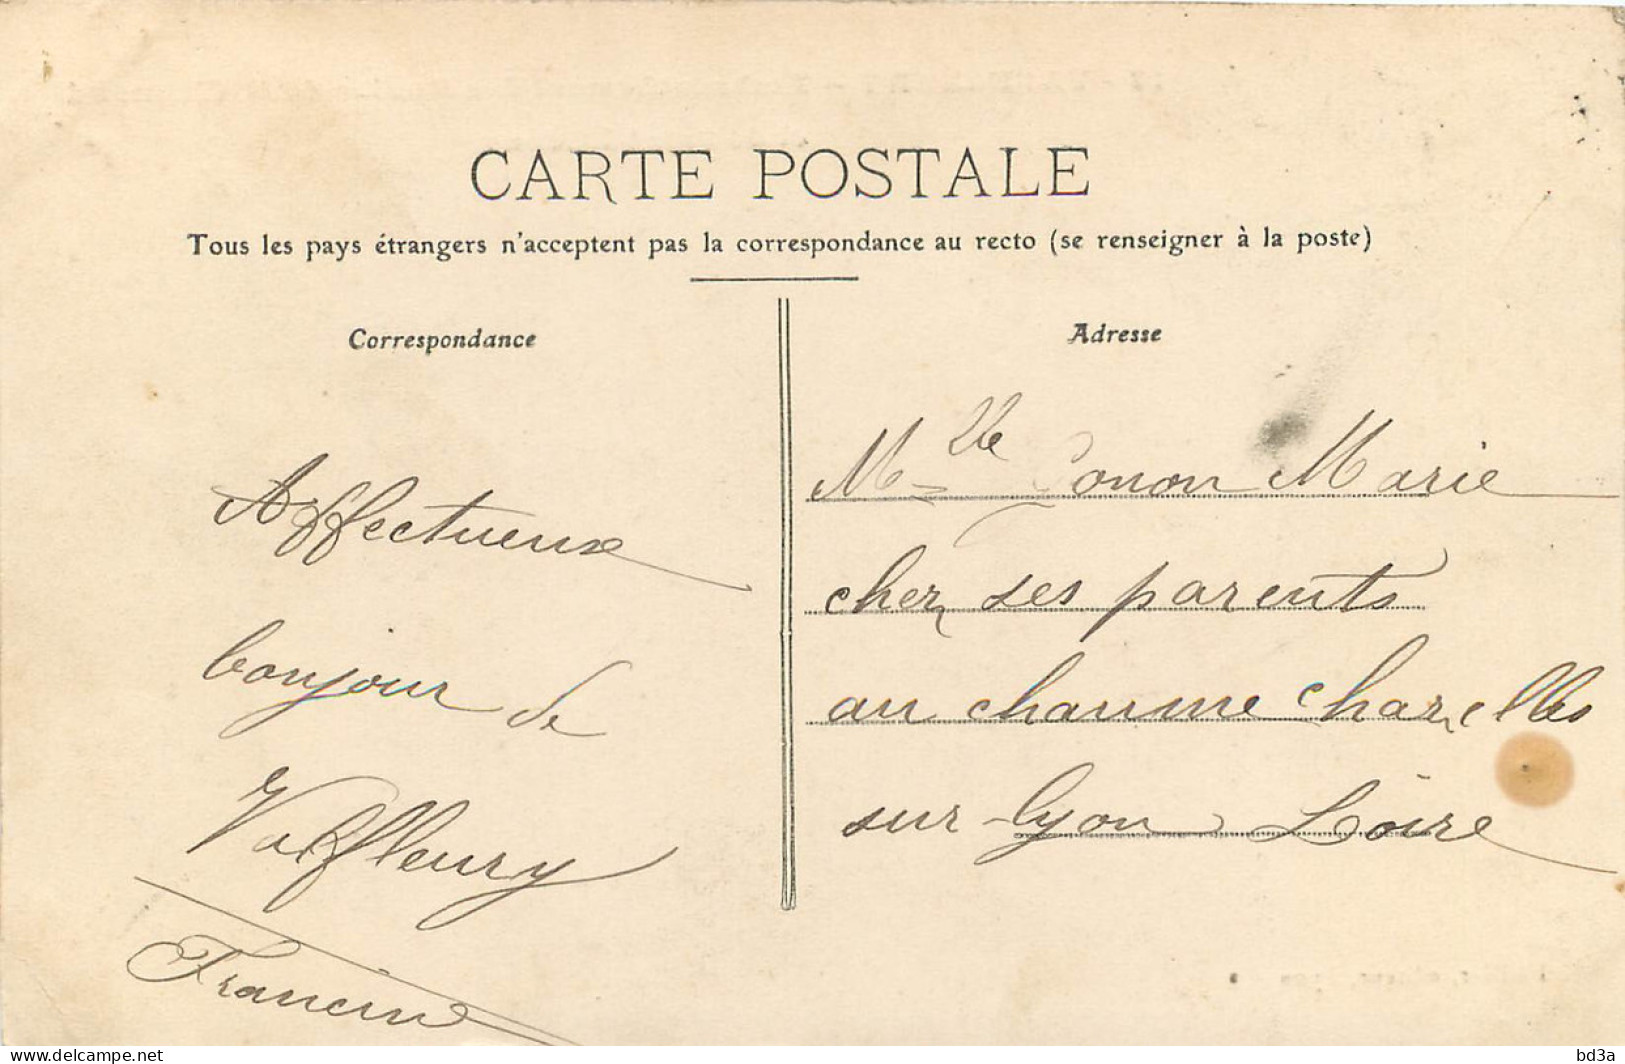 CARTE POSTALE
Tous les pays étrangers n'acceptent pas la correspondance au recto (se renseigner à la poste)
Correspondance
Affectueux
bonjour de
Valfleury
Francine
Adresse
Mlle Marie
chez ses parents
au chaume Chazelles
sur-lyon Loire
delcampe.net
bd3a